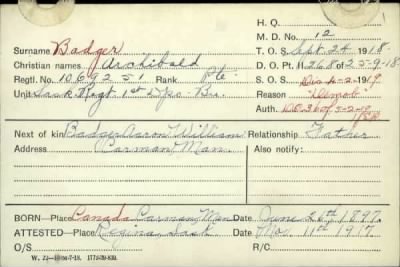 H. Q.
M. D. No. 12
Surname Badger T. O. S. Sept. 24 1918
Christian names Archibald D. O. Pt. II 268 of 25-9-18
Regtl. No. 1069251 Rank Pte. S. O. S. Dis 4-2-1919
Unit Sask Regt. 1st Dpo. Bn. Reason "Demob"
Auth. D.O. 36 of 5-2-19
Next of kin Badger Aaron William Relationship Father
Address Carman, Man. Also notify:
BORN—Place Canada Carman, Man Date June 26th 1897.
ATTESTED—Place Regina, Sask Date Nov. 11th 1917.
O/S R/C